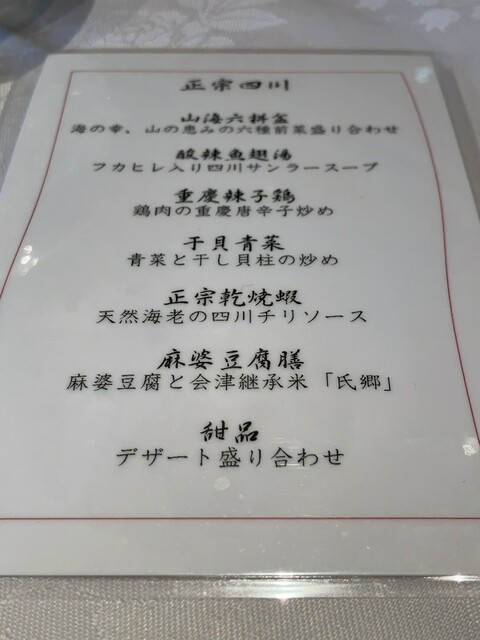 正宗四川
山海六拼盆
海の幸、山の恵みの六種前菜盛り合わせ
酸辣魚翅湯
フカヒレ入り四川サンラースープ
重慶辣子鶏
鶏肉の重慶唐辛子炒め
干貝青菜
青菜と干し貝柱の炒め
正宗乾焼蝦
天然海老の四川チリソース
麻婆豆腐膳
麻婆豆腐と会津継承米「氏郷」
甜品
デザート盛り合わせ